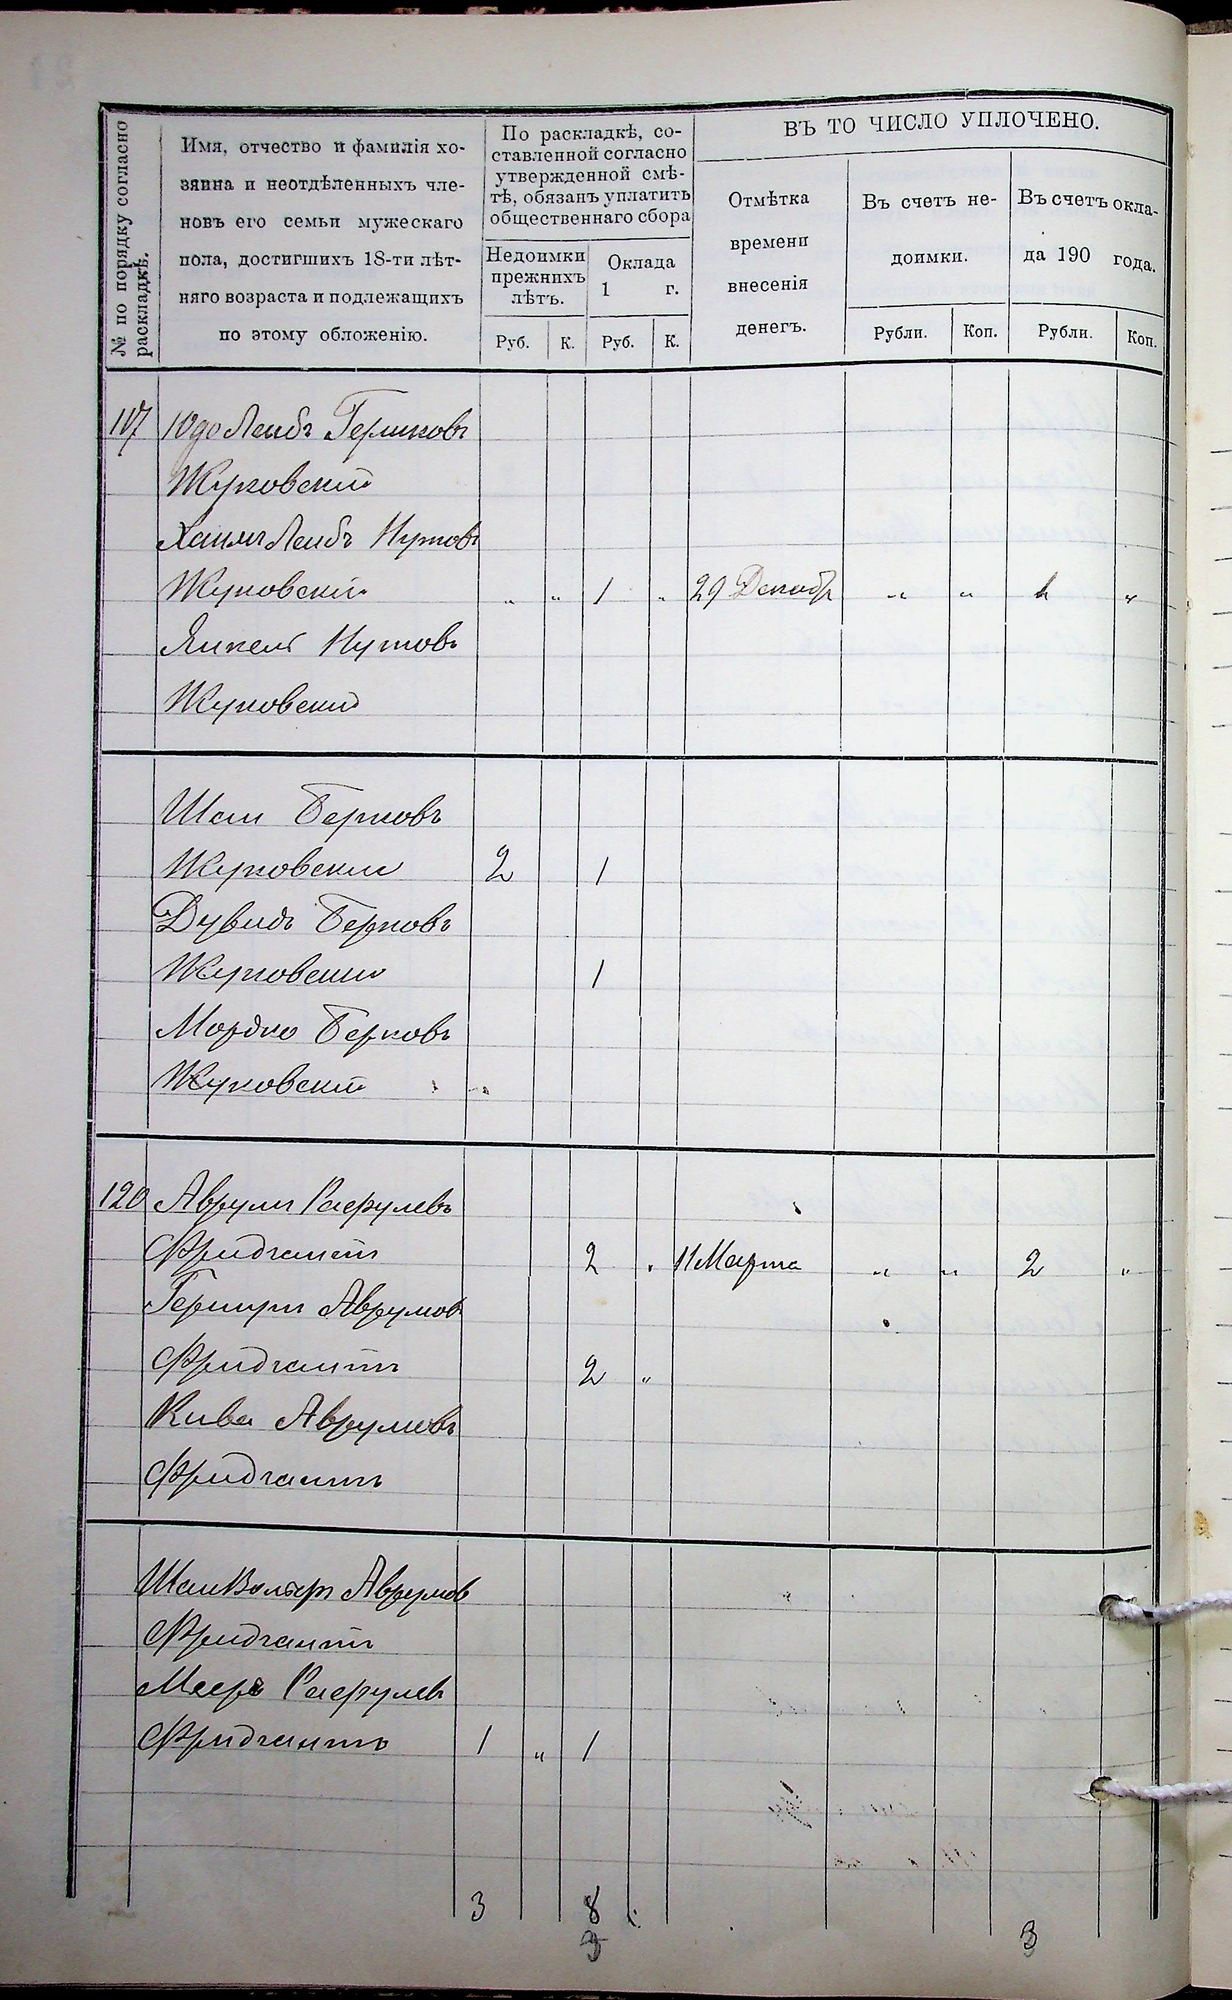 № по порядку согласно раскладкѣ.
Имя, отчество и фамилія хо-
зяина и неотдѣленныхъ чле-
новъ его семьи мужескаго
пола, достигшихъ 18-ти лѣт-
няго возраста и подлежащихъ
по этому обложенію.
По раскладкѣ, со-
ставленной согласно
утвержденной смѣ-
тѣ, обязанъ уплатить
общественнаго сбора
Недоимки
прежнихъ
лѣтъ.
Оклада
1 г.
Руб. К. Руб. К.
ВЪ ТО ЧИСЛО УПЛОЧЕНО.
Отмѣтка
времени
внесенія
денегъ.
Въ счетъ не-
доимки.
Въ счетъ окла-
да 190 года.
Рубли. Коп. Рубли. Коп.
117 Юдо Лейбъ Гершковъ
Жуковскій
Хаимъ Лейбъ Нутовъ
Жуковскій „ „ 1 „ 29 Декабр „ „ 1 „
Янкель Нутовъ
Жуковскій
Шая Берковъ
Жуковскій 2 1
Дувидъ Берковъ
Жуковскій 1
Мордко Берковъ
Жуковскій
120 Аврумъ
Фридгантъ 2 „ 11 Марта „ „ 2 „
Аврумов
Фридгантъ 2 „
Кива Аврумовъ
Фридгантъ
Аврумов
Фридгантъ
Мееръ
Фридгантъ 1 „ 1
3 8
3 3